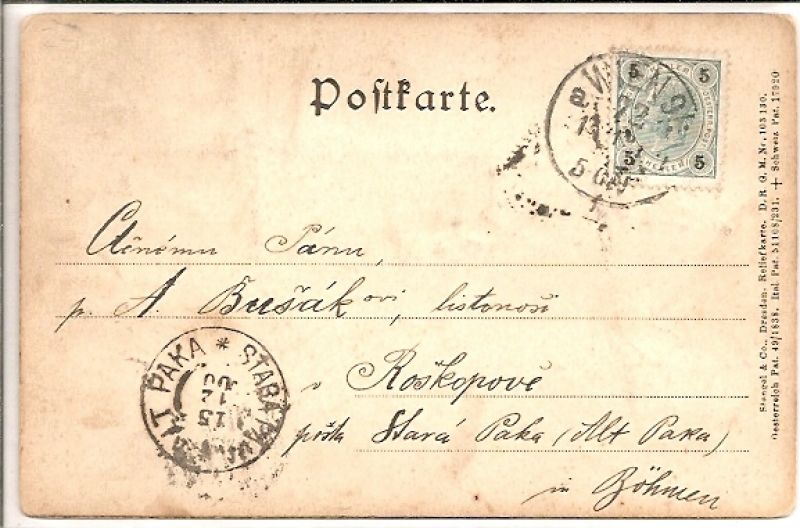 Postkarte.
WIEN
5 5
5 5
Ctěnému Pánu,
p. A. Bušákovi, listonoši
v Roškopově
pošta Stará Paka (Alt Paka)
in Böhmen
ALT PAKA * STARA PAKA
15
12
00
Stengel & Co., Dresden- Reliefkarte. D. R. G. M. Nr. 103 130.
Oesterreich Pat. 49/1838. Ital. Pat. 51108/231. + Schweiz Pat. 17920